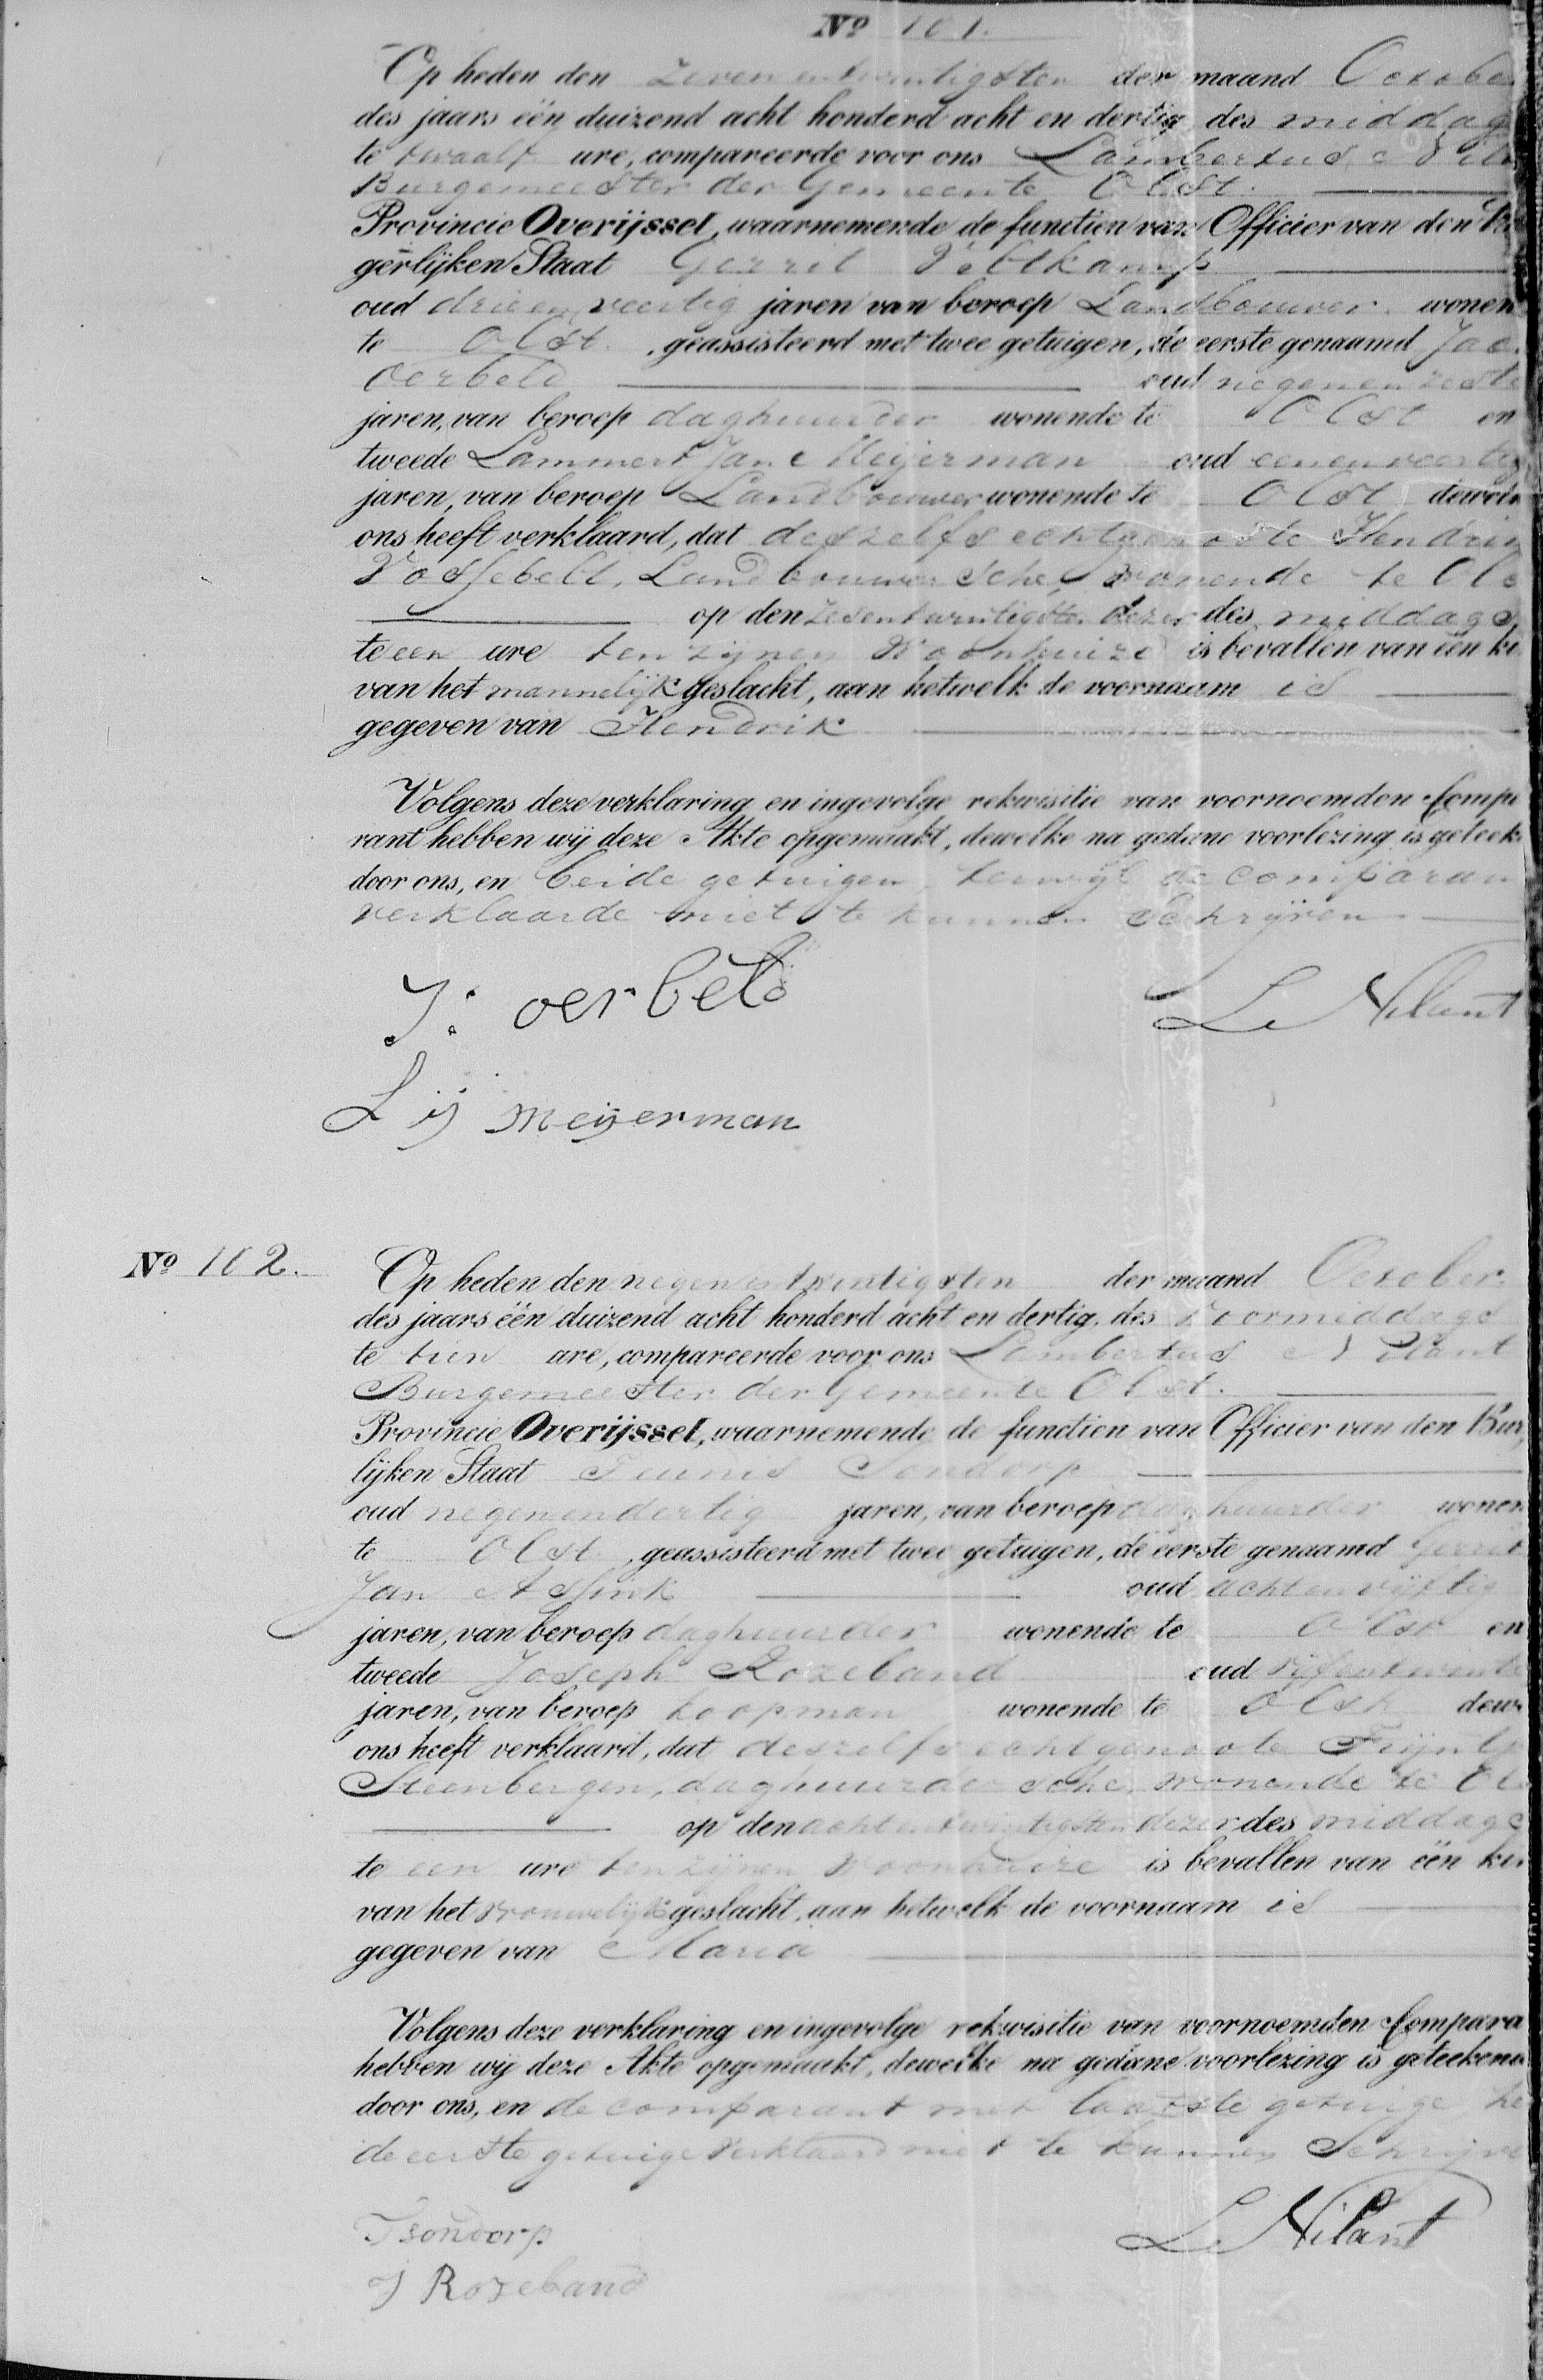 No 101.
Op heden den zeven entwintigsten der maand Octobe
des jaars één duizend acht honderd acht en dertig des middag
te twaalf ure, compareerde voor ons Lambertus Nila
Burgemeester der Gemeente Olst.
Provincie Overijssel, waarnemende de functien van Officier van den Bu
gerlijken Staat Gerrit Veltkamp
oud drieenveertig jaren van beroep Landbouwer wonen
te Olst, geassisteerd met twee getuigen, de eerste genaamd Jac
Oerbeld oud negenenzesti
jaren, van beroep daghuurder wonende te Olst en
tweede Lammert Jan Meijerman oud eenenveertig
jaren, van beroep Landbouwer wonende te Olst dewelk
ons heeft verklaard, dat deszelfs echtgenoote Hendrin
Vossebelt, Landbouwersche, wonende te Ols
op den zesentwintigsten dezer des middags
te een ure ten zijnen Woonhuize is bevallen van één ki
van het mannelijk geslacht, aan hetwelk de voornaam is
gegeven van Hendrik
Volgens deze verklaring en ingevolge rekwisitie van voornoemden Compa
rant hebben wij deze Akte opgemaakt, dewelke na gedane voorlezing is geteek
door ons, en beide getuigen, terwijl de comparan
verklaarde niet te kunnen Schrijven
J: oerbeld Le Nilant
L ij meijerman
No 102.
Op heden den negenentwintigsten der maand October
des jaars één duizend acht honderd acht en dertig, des voormiddags
te tien ure, compareerde voor ons Lambertus Nilant
Burgemeester der Gemeente Olst.
Provincie Overijssel, waarnemende de functien van Officier van den Bur
lijken Staat Teunis Sondorp
oud negenendertig jaren, van beroep daghuurder wonen
te Olst, geassisteerd met twee getuigen, de eerste genaamd Gerrit
Jan Assink oud achtenvijftig
jaren, van beroep daghuurder wonende te Olst en
tweede Joseph Rozeband oud vijfentwinti
jaren, van beroep koopman wonende te Olst dewe
ons heeft verklaard, dat deszelfs echtgenoote Trijntj
Steenbergen, daghuurdersche, wonende te Ol
op den achtentwintigsten dezer des middags
te een ure ten zijnen Woonhuize is bevallen van één kin
van het vrouwelijk geslacht, aan hetwelk de voornaam is
gegeven van Maria
Volgens deze verklaring en ingevolge rekwisitie van voornoemden Compara
hebben wij deze Akte opgemaakt, dewelke na gedane voorlezing is geteekend
door ons, en de comparant met laatste getuige he
de eerste getuige verklaard niet te kunnen Schrijve
T sondorp Le Nilant
J Rozeband